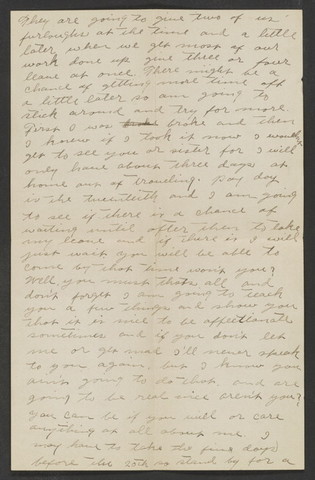 They are going to give two of us
furloughs at the time and a little
later when we get most of our
work done up give three or four
leave at once. There might be a
chance of getting more time off
a little later so am going to
stick around and try for more.
First I was broke and then
I knew if I took it now I wouldn't
get to see you or sister for I will
only have about three days at
home out of traveling. Pay day
is the twentieth and I am going
to see if there is a chance of
waiting until after then to take
my leave and if there is I will
just wait you will be able to
come by that time won't you?
Well, you must thats all and
don't forget I am going to teach
you a few things and show you
that it is nice to be affectionate
sometimes and if you don't let
me or get mad I'll never speak
to you again. but I know you
ain't going to do that, and are
going to be real nice aren't you?
you can be if you will or care
anything at all about me. I
may have to take the five days
before the 20th or stand by for a